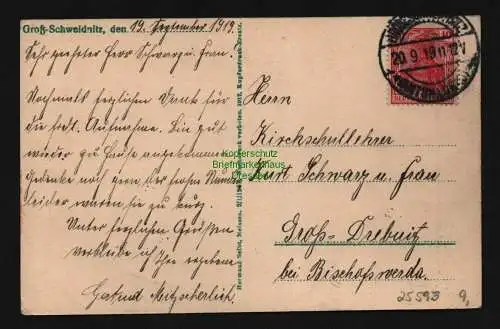 Groß-Schweidnitz, den 19. September 1919.
Sehr geehrter Herr Schwarz u. Frau.
Nochmals herzlichen Dank für
die frdl. Aufnahme. Bin gut
wieder zu Hause angekommen
Gedenke noch gern der frohen Stunden
leider waren sie zu kurz.
Unter herzlichen Grüßen
verbleibe ich Ihre ergebene
Gertrud Mitzscherlich.
20.9.19 11-12V
Herrn
Kirchschullehrer
Kurt Schwarz u. Frau
Groß-Drebnitz
bei Bischofswerda.
25593 9,
Köperschutz
Briefmarkenhaus
Dresden